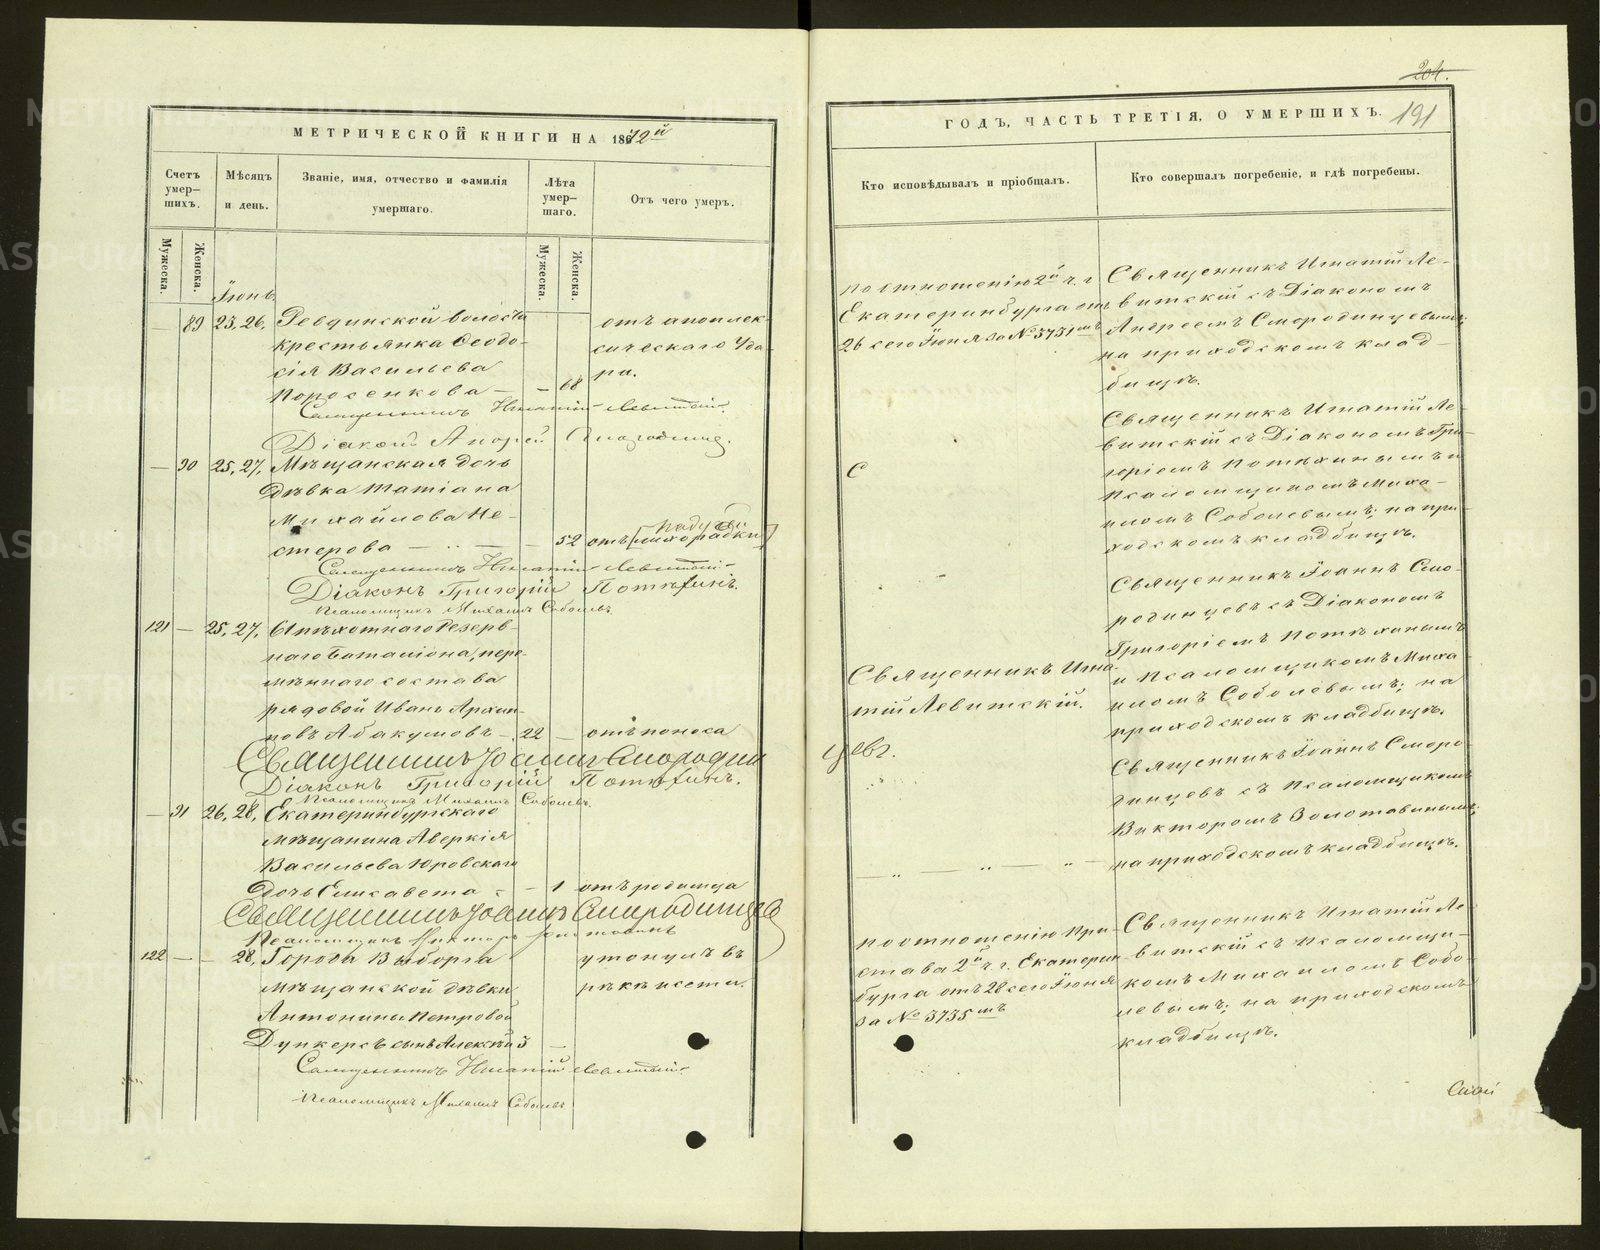 МЕТРИЧЕСКОЙ КНИГИ НА 1872й
Счетъ умер-шихъ.
Мѣсяцъ и день.
Званіе, имя, отчество и фамилія умершаго.
Лѣта умер-шаго.
Отъ чего умеръ.
Мужеска.
Женска.
Мужеска.
Женска.
Іюнь
— 89 23, 26, Ревдинской волости отъ апоплек-
крестьянка Ѳеодо- сическаго уда-
сія Васильева ра.
Поросенкова — — 68
Священникъ Игнатій Левитскій.
Діаконъ Андрей
— 90 25, 27, Мѣщанская дочь
дѣвка Татіана
Михайлова Не-
стерова — 52 отъ [лихорадки]
падучей
Священникъ Игнатій Левитскій
Діаконъ Григорій Потѣхинъ.
Псаломщикъ Михаилъ Соболевъ.
121 — 25, 27, 61 пѣхотнаго Резерв-
наго баталіона, пере-
мѣннаго состава
рядовой Иванъ Архип-
повъ Абакумовъ — 22 — отъ поноса
Священникъ Іоаннъ Смородин
цевъ.
Діаконъ Григорій Потѣхинъ.
Псаломщикъ Михаилъ Соболевъ.
— 91 26, 28, Екатеринбургскаго
мѣщанина Аверкія
Васильева Юровскаго
дочь Елисавета — 1 отъ родимца
Священникъ Іоаннъ Смородинцевъ
Псаломщикъ Викторъ Золотавинъ
122 — — 28, Города Выборга утонулъ въ
мѣщанской дѣвки рѣкѣ Исети.
Антонины Петровой
Дункерсъ сынъ Алексѣй 5 —
Священникъ Игнатій Левитскій
Псаломщикъ Михаилъ Соболевъ
204.
ГОДЪ, ЧАСТЬ ТРЕТІЯ, О УМЕРШИХЪ.
191
Кто исповѣдывалъ и пріобщалъ.
Кто совершалъ погребеніе, и гдѣ погребены.
По отношенію 2й ч. г.
Екатеринбурга отъ
26 сего Іюня за № 3731мъ
Священникъ Игнатій Ле-
витскій съ Діакономъ
Андреемъ Смородинцевымъ;
на приходскомъ клад-
бищѣ.
С
Священникъ Игнатій Ле-
витскій съ Діакономъ Гри-
горіемъ Потѣхинымъ и
Псаломщикомъ Миха-
иломъ Соболевымъ; на при-
ходскомъ кладбищѣ.
Священникъ Игна-
тій Левитскій.
Священникъ Іоаннъ Смо-
родинцевъ съ Діакономъ
Григоріемъ Потѣхинымъ
и Псаломщикомъ Миха
иломъ Соболевымъ; на
приходскомъ кладбищѣ.
Священникъ Іоаннъ Сморо-
динцевъ съ Псаломщикомъ
Викторомъ Золотавинымъ;
на приходскомъ кладбищѣ.
По отношенію При-
става 2й ч. г. Екатерин-
бурга отъ 28 сего Іюня
за № 3735мъ
Священникъ Игнатій Ле
витскій съ Псаломщи-
комъ Михаиломъ Собо-
левымъ; на приходскомъ
кладбищѣ.